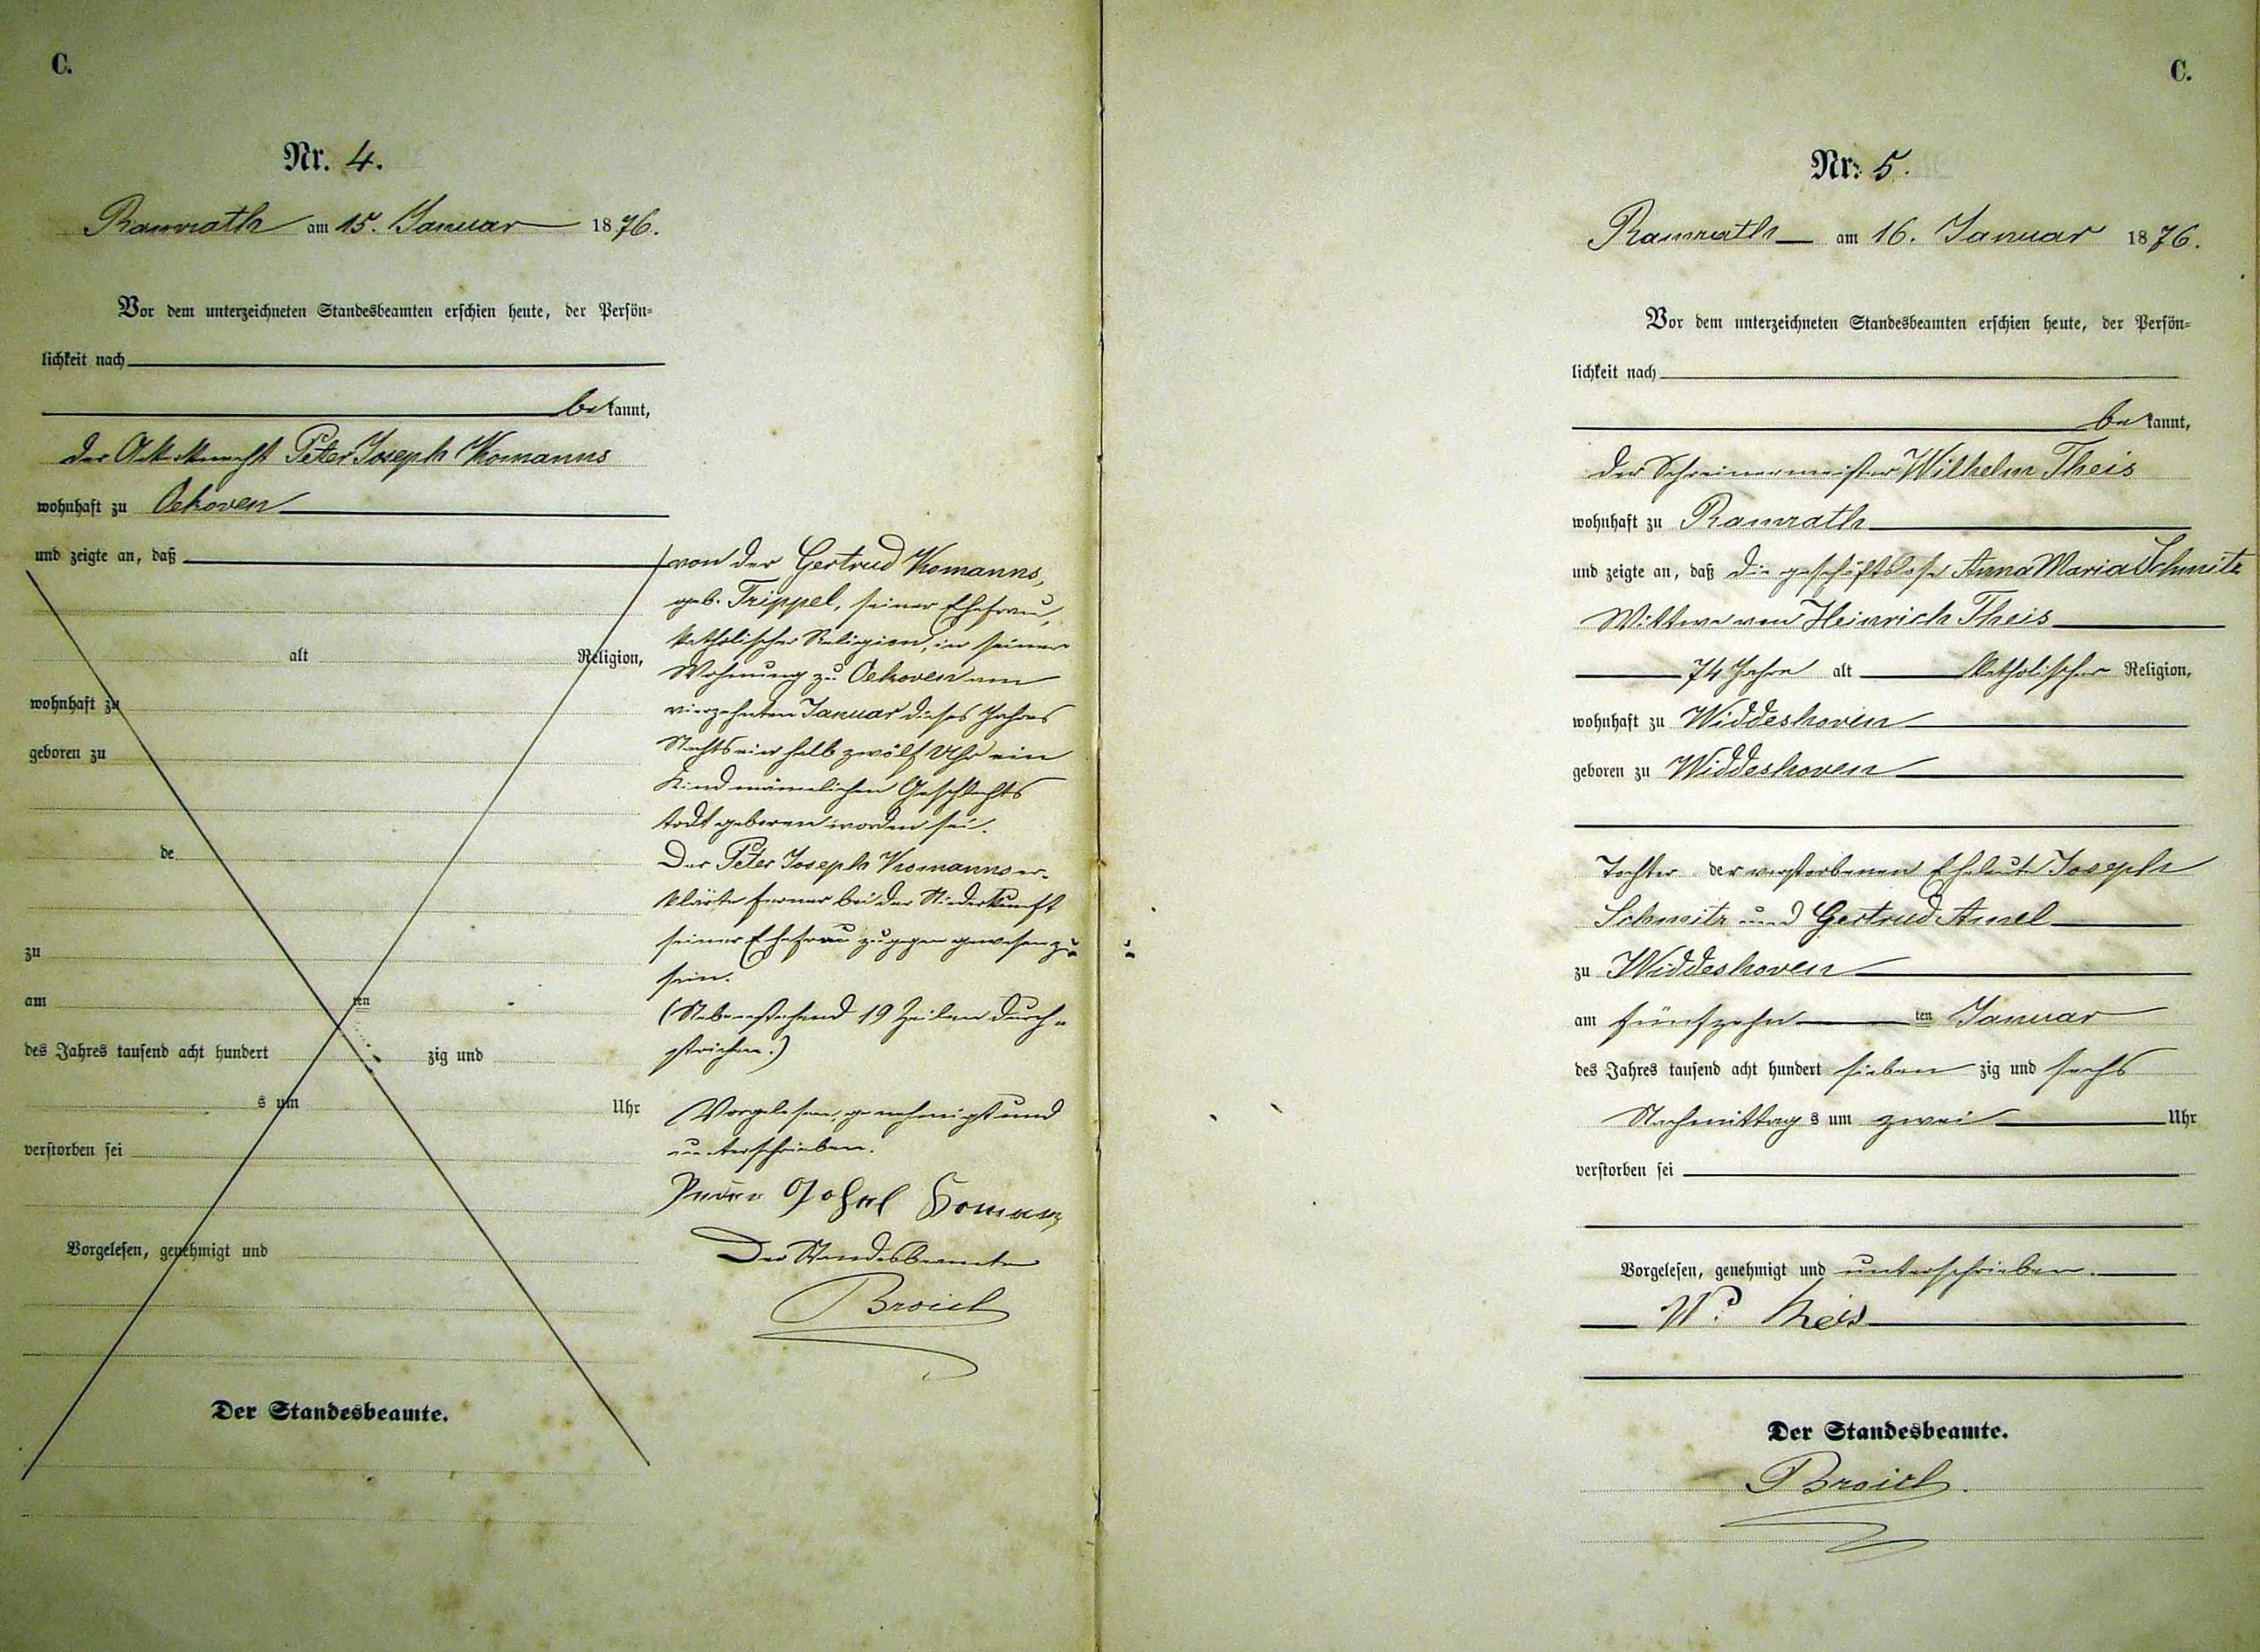 C.
Nr. 4.
Ramrath am 15. Januar 1876.
Vor dem unterzeichneten Standesbeamten erschien heute, der Persön-
lichkeit nach
bekannt,
der Ackerknecht Peter Joseph Komanns
wohnhaft zu Oekoven
und zeigte an, daß
alt Religion,
wohnhaft zu
geboren zu
de
zu
am ten
des Jahres tausend acht hundert zig und
s um Uhr
verstorben sei
Vorgelesen, genehmigt und
Der Standesbeamte.
von der Gertrud Komanns,
geb. Trippel, seiner Ehefrau,
katholischer Religion, in seiner
Wohnung zu Oekoven am
vierzehnten Januar dieses Jahres
Nachts ein halb zwölf Uhr ein
Kind männlichen Geschlechts
todt geboren worden sei.
Der Peter Joseph Komanns er-
klärte ferner bei der Niederkunft
seiner Ehefrau zugegen gewesen zu
sein.
(Nebenstehend 19 Zeilen durch-
strichen.)
Vorgelesen, genehmigt und
unterschrieben.
Der Standesbeamte
Broich
C.
Nr. 5.
Ramrath am 16. Januar 1876.
Vor dem unterzeichneten Standesbeamten erschien heute, der Persön-
lichkeit nach
bekannt,
der Schreinermeister Wilhelm Theis
wohnhaft zu Ramrath
und zeigte an, daß die geschäftslose Anna Maria Schmitz
Wittwe von Heinrich Theis
74 Jahre alt katholischer Religion,
wohnhaft zu Widdeshoven
geboren zu Widdeshoven
Tochter der verstorbenen Eheleute Joseph
Schmitz und Gertrud Amel
zu Widdeshoven
am fünfzehn ten Januar
des Jahres tausend acht hundert sieben zig und sechs
Nachmittags um zwei Uhr
verstorben sei
Vorgelesen, genehmigt und unterschrieben.
W. Theis
Der Standesbeamte.
Broich.